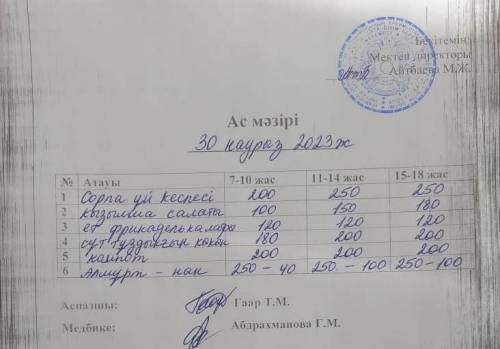 Бекітемін
Мектеп директоры
Айтбаева М.Ж.
Ас мәзірі
30 наурыз 2023 ж
№ Атауы 7-10 жас 11-14 жас 15-18 жас
1 Сорпа үй кеспесі 200 250 250
2 қызылша салаты 100 150 180
3 ет фрикаделькалары 120 120 120
4 сүт тұздығын қосып 180 200 200
5 компот 200 200 200
6 Алмұрт - нан 250 - 40 250 - 100 250-100
Аспазшы: Гаар Т.М.
Медбике: Абдрахманова Г.М.